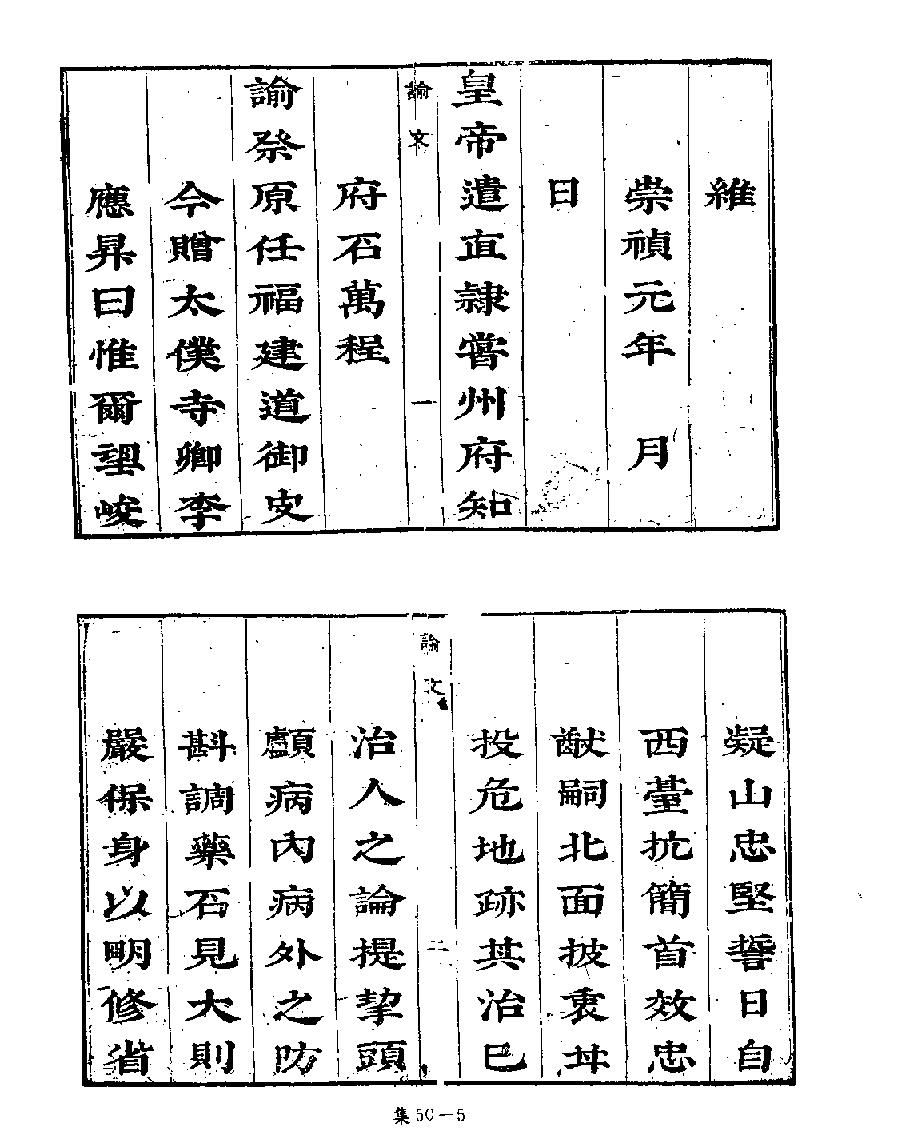 維
崇禎元年　月
日
皇帝遣直隸常州府知
諭文
一
府石萬程
諭祭原任福建道御史
今贈太僕寺卿李
應昇曰惟爾望峻
凝山忠堅誓日自
西臺抗簡首效忠
猷嗣北面披衷毋
投危地跡其治已
諭文
二
治人之論提挈頭
顱病內病外之防
斟調藥石見大則
嚴保身以明修省
集50－5